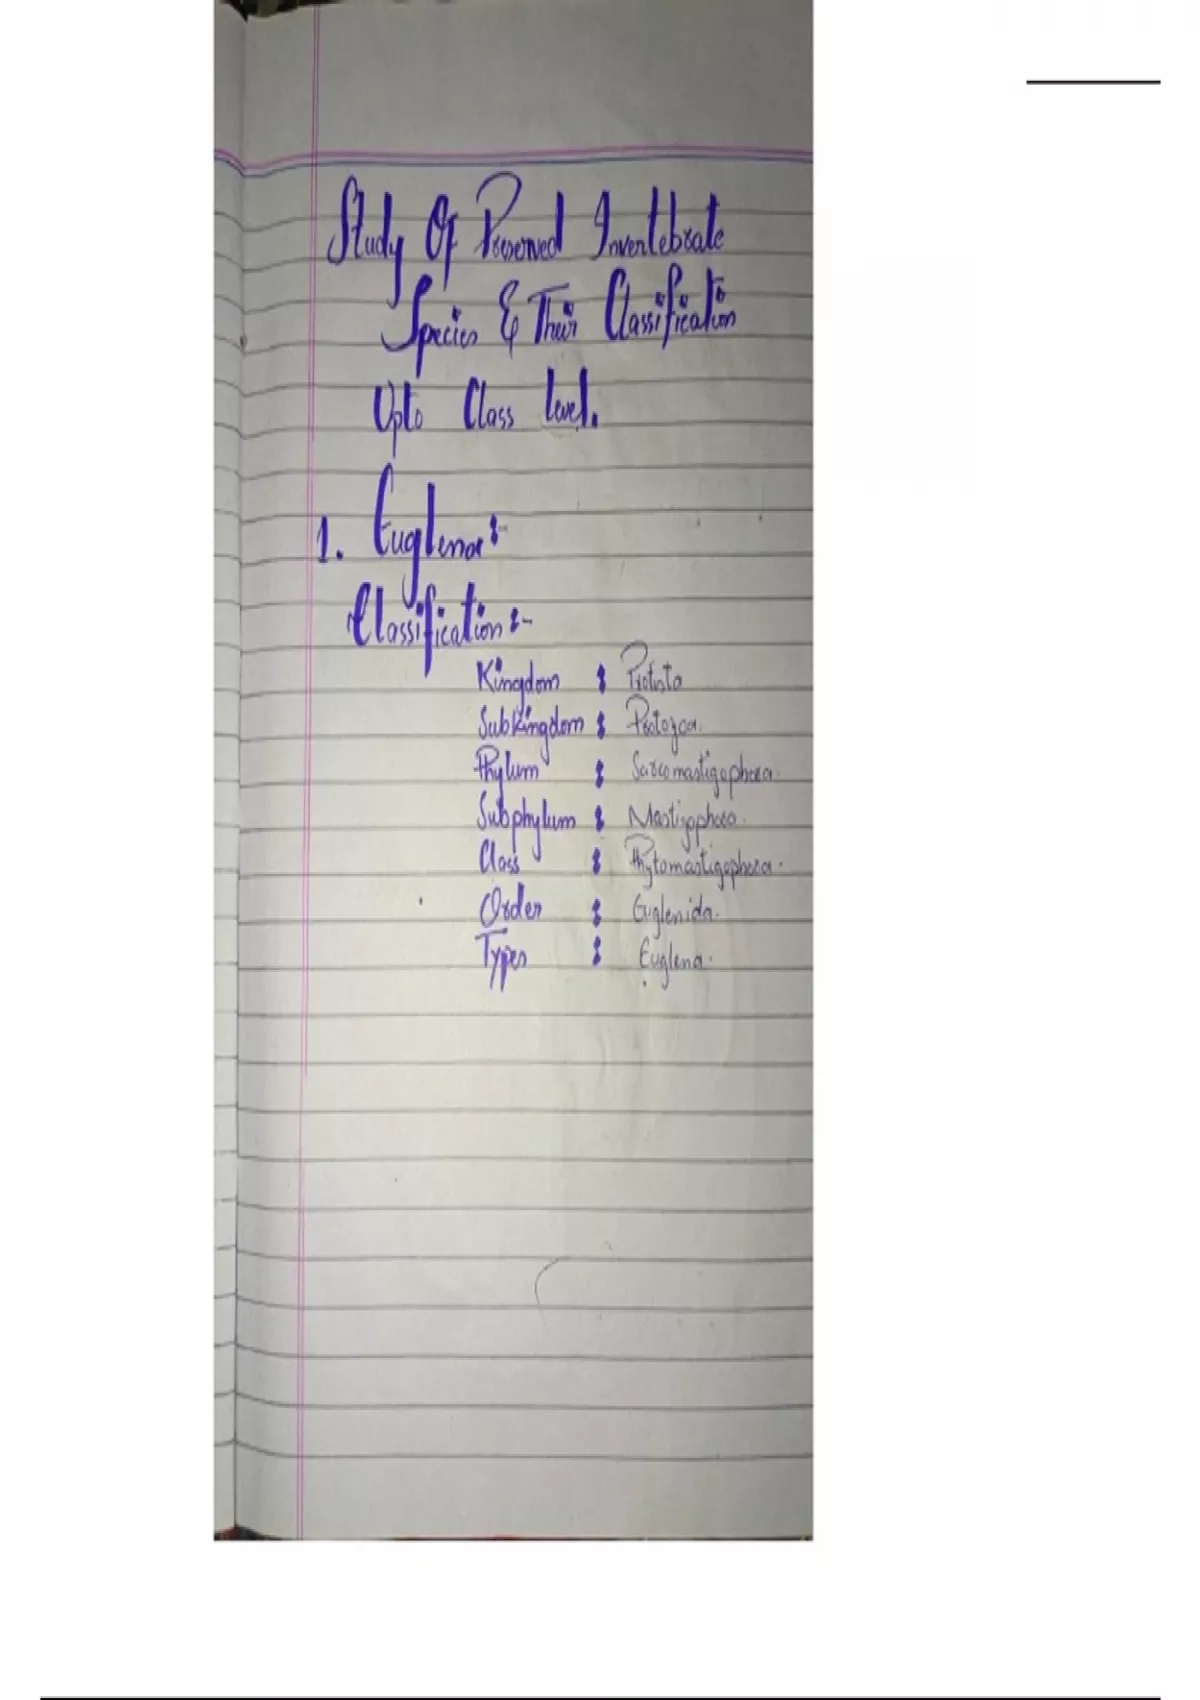 Study Of Preserved Invertebrate
Species & Their Classification
Upto Class level.
1. Euglena:-
Classification:-
Kingdom : Protista
Subkingdom : Protozoa.
Phylum : Sarcomastigophora.
Subphylum : Mastigophora.
Class : Phytomastigophora.
Order : Euglenida.
Types : Euglena.